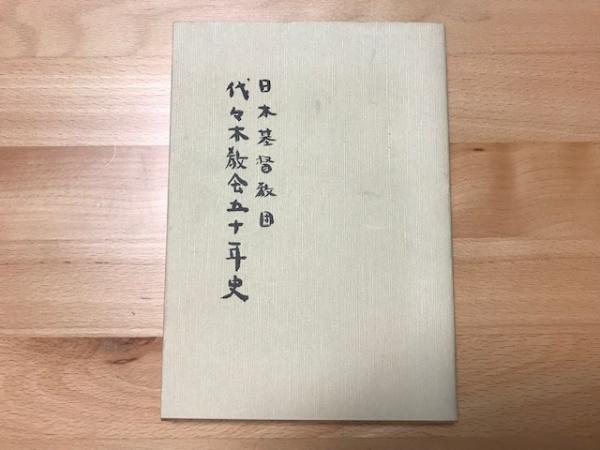 日本基督教団
代々木教会五十年史